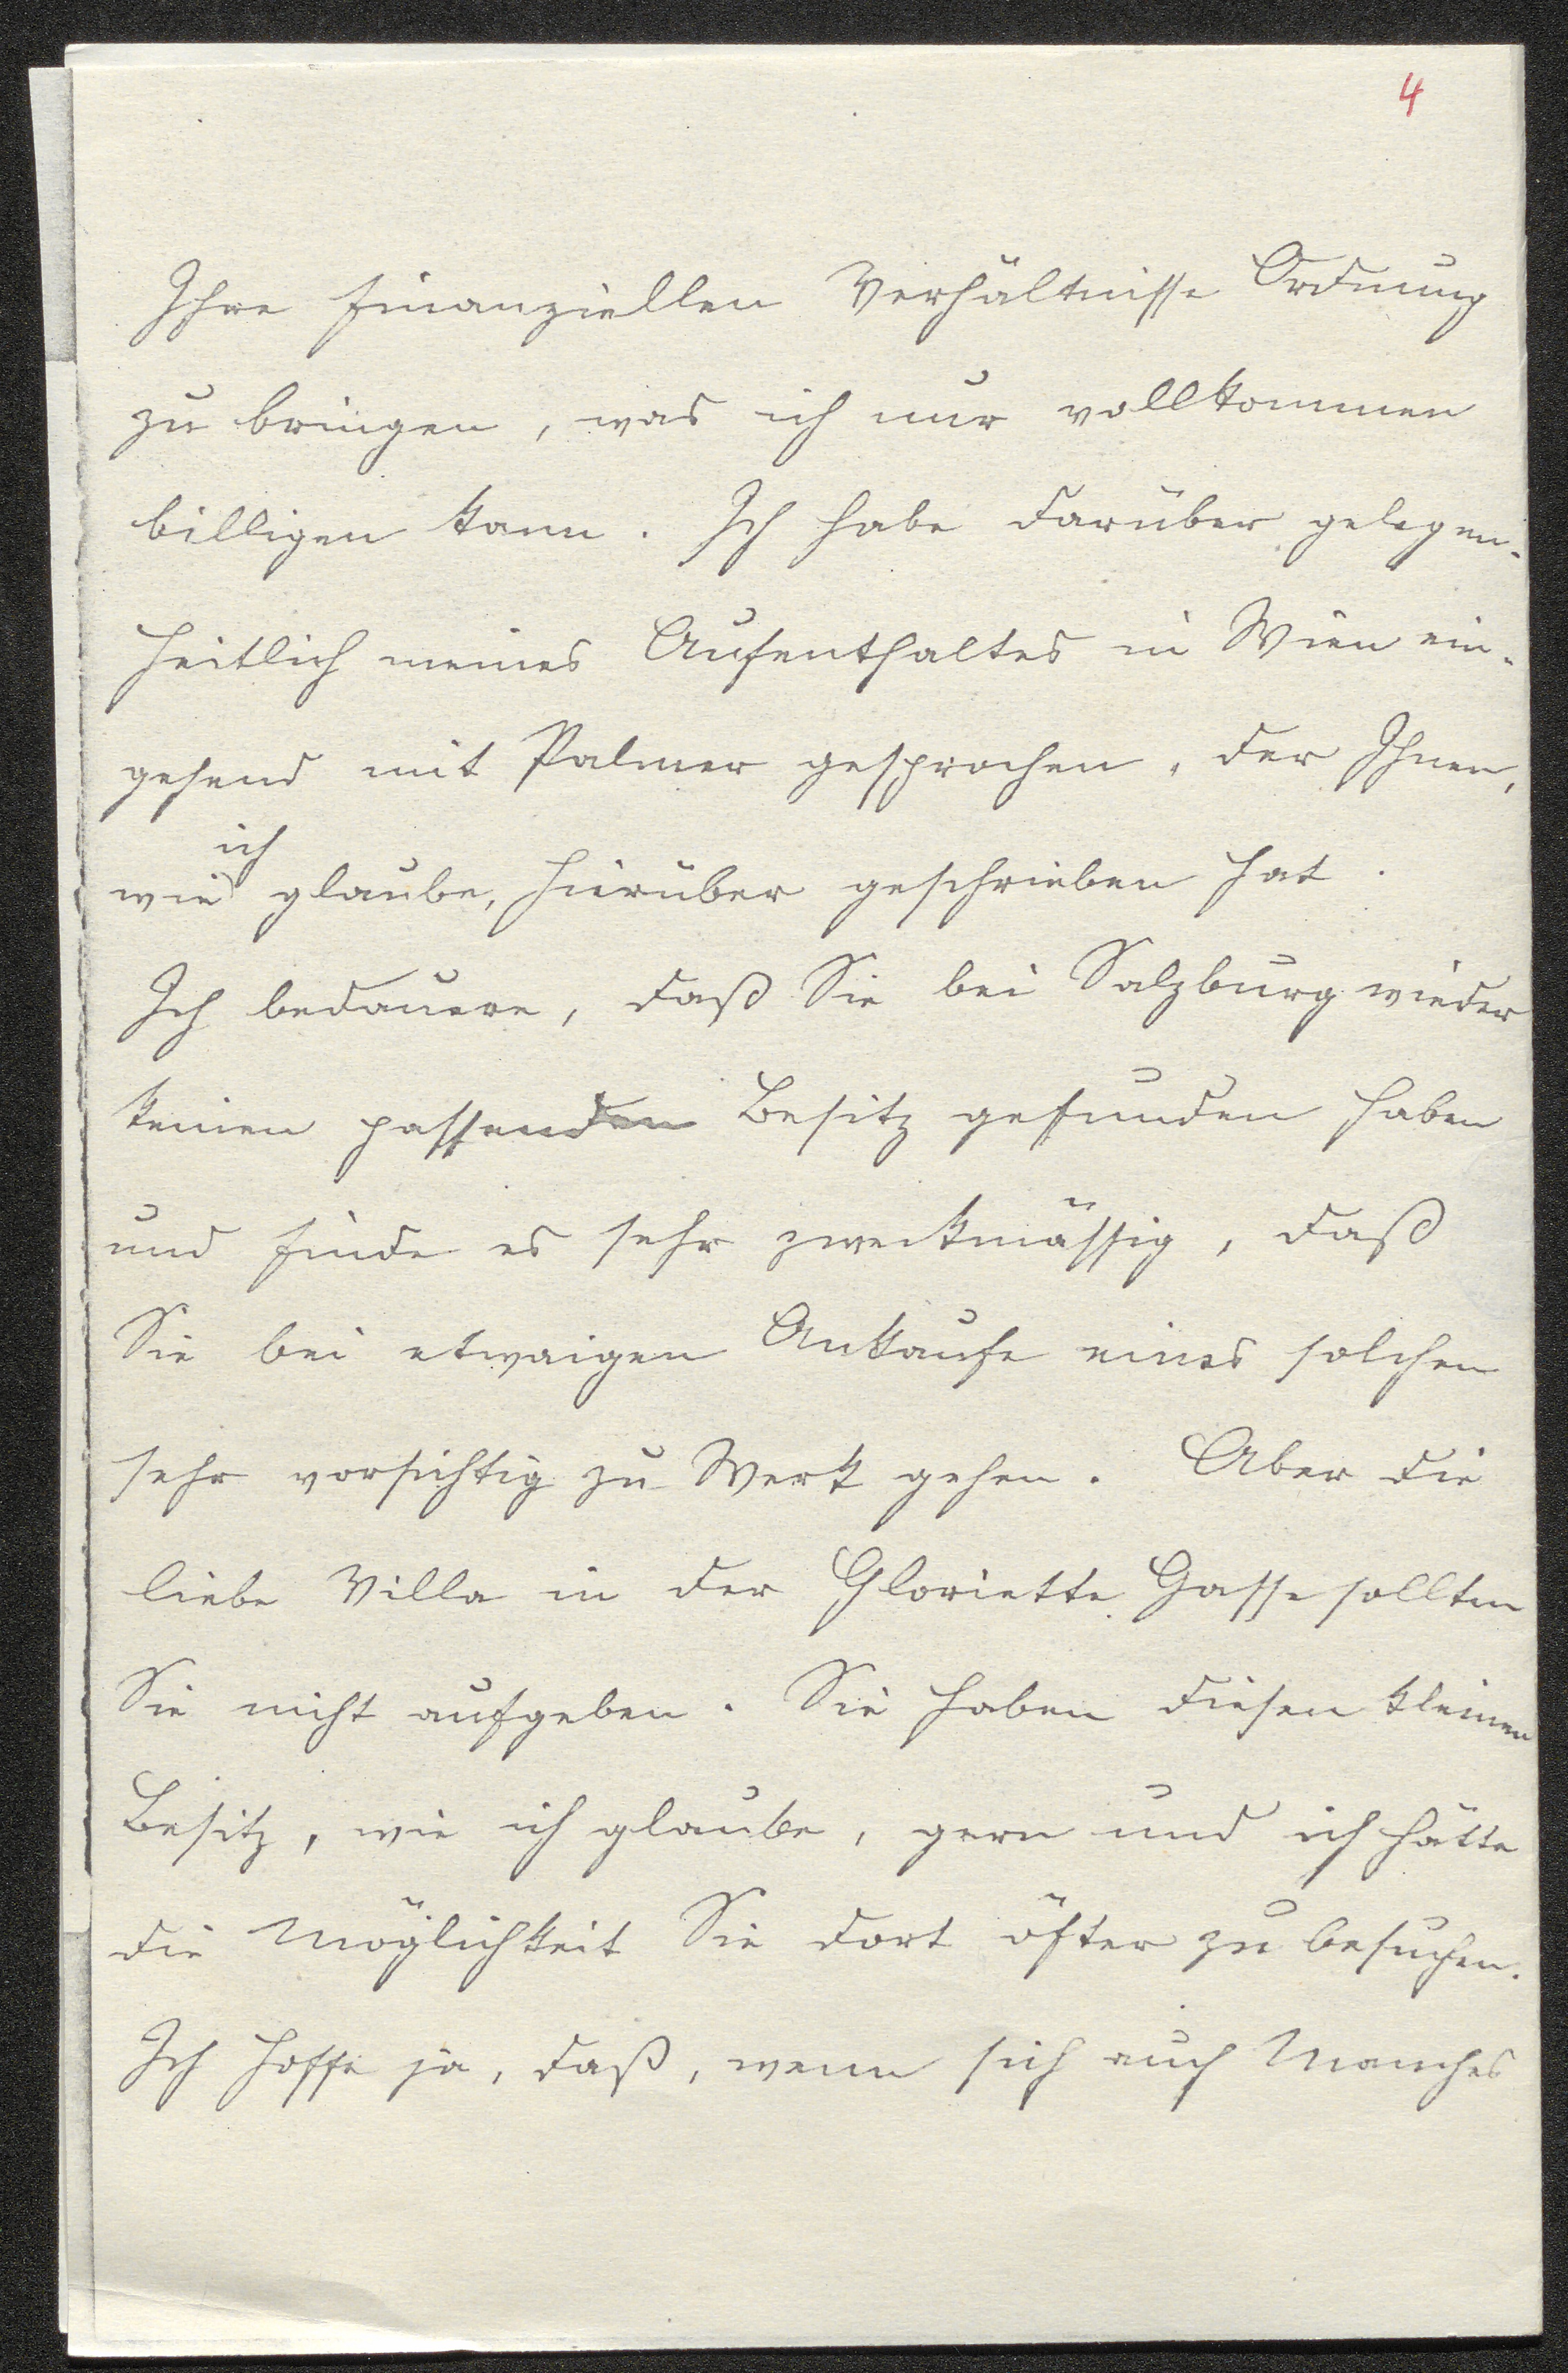 4
Ihre finanziellen Verhältnisse Ordnung
zu bringen, was ich nur vollkommen
billigen kann. Ich habe darüber gelegen-
heitlich meines Aufenthaltes in Wien ein-
gehend mit Palmer gesprochen, der Ihnen,
ich
wie glaube, hierüber geschrieben hat.
Ich bedauere, daß Sie bei Salzburg wieder
keinen passenden Besitz gefunden haben
und finde es sehr zweckmässig, daß
Sie bei etwaigen Ankaufe eines solchen
sehr vorsichtig zu Werk gehen. Aber die
liebe Villa in der Gloriette Gasse sollten
Sie nicht aufgeben. Sie haben diesen kleinen
Besitz, wie ich glaube, gern und ich hätte
die Möglichkeit Sie dort öfter zu besuchen.
Ich hoffe ja, daß, wenn sich auch Manches